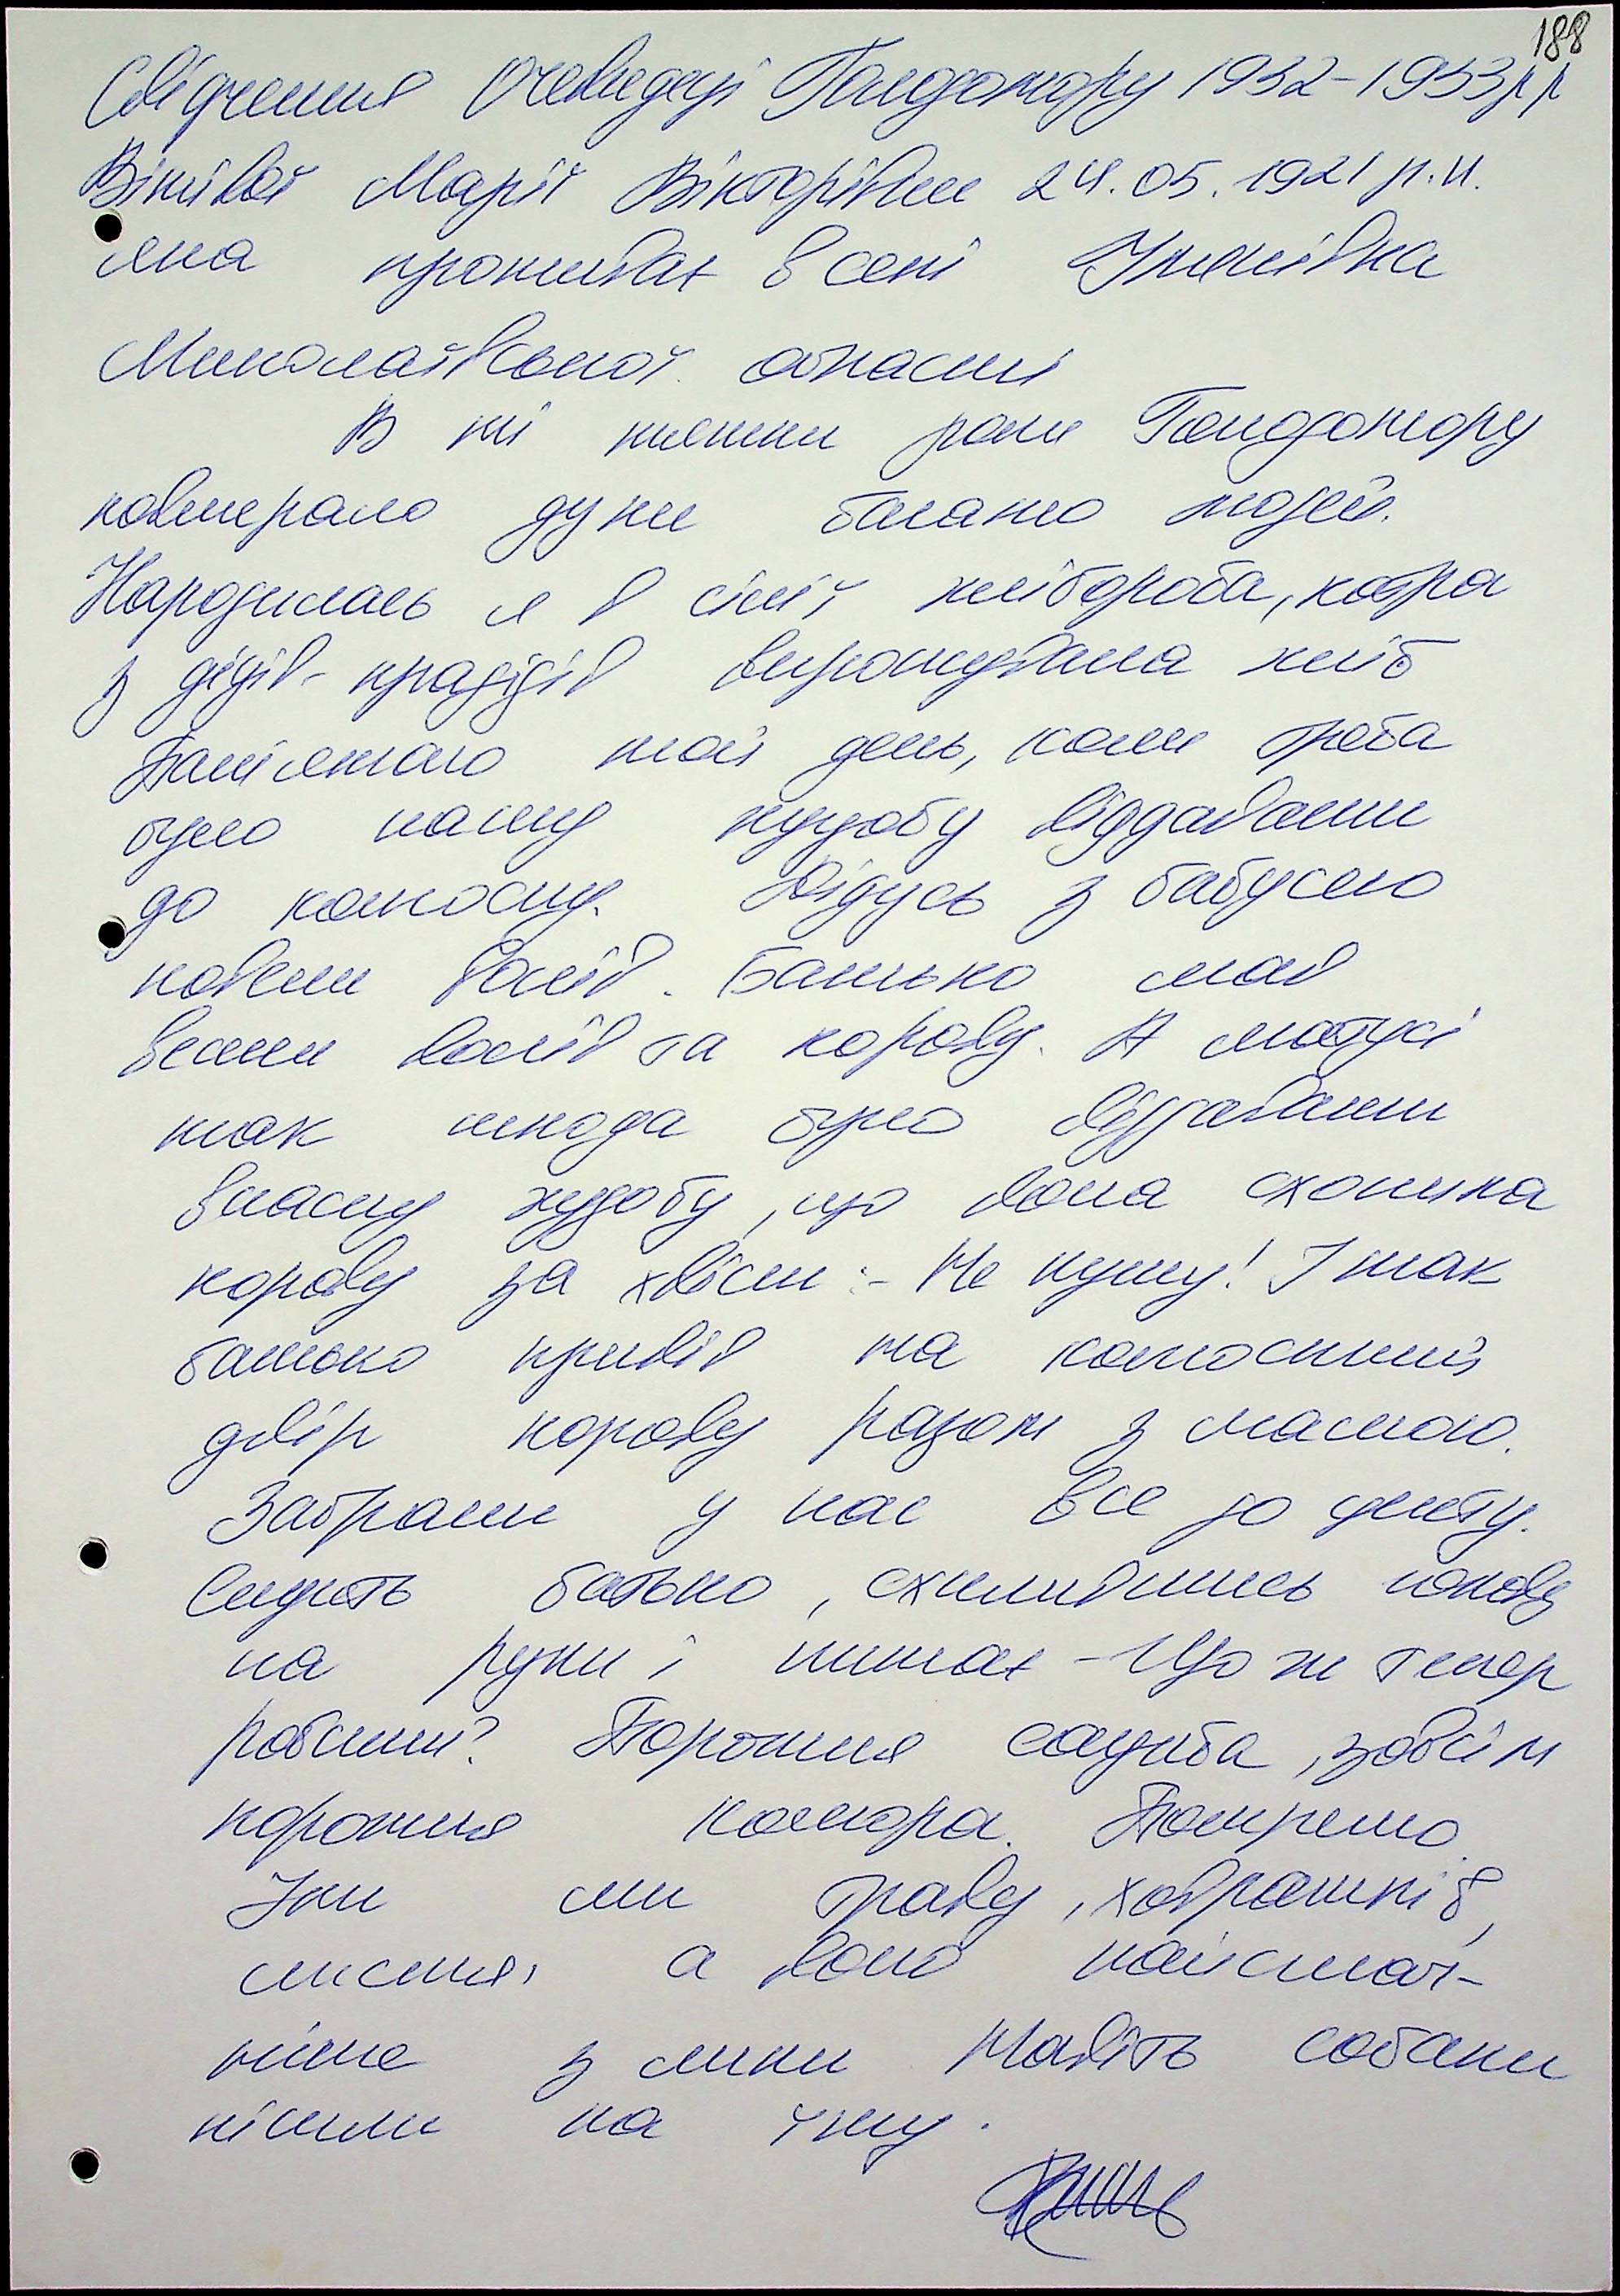 188
Свідчення Очевидця Голодомору 1932-1933рр
Вікторівни 24.05.1921 р.н.
яка проживає в селі
Миколаївської області
В ті тяжкі роки Голодомору
повмерало дуже багато людей.
Народилась я в сім'ї хлібороба, котра
з дідів-прадідів вирощувала хліб
Пам'ятаю той день, коли треба
було нашу худобу віддавати
до колгоспу. Дідусь з бабусею
повели волів. Батько мав
вести волів та корову. А матусі
так шкода було віддавати
власну худобу, що вона схопила
корову за хвіст :- Не пущу! І так
батько привів на колгоспний
двір корову разом з мамою.
Забрали у нас все до центу.
Сидить батько, схиливишсь голову
на руки і питає - Що ж тепер
робити? Порожня садиба, зовсім
порожня комора. Помремо.
Їли ми траву, ховрашків,
листя, а воно найсмач-
ніше з липи Навіть собаки
пішли на їжу.